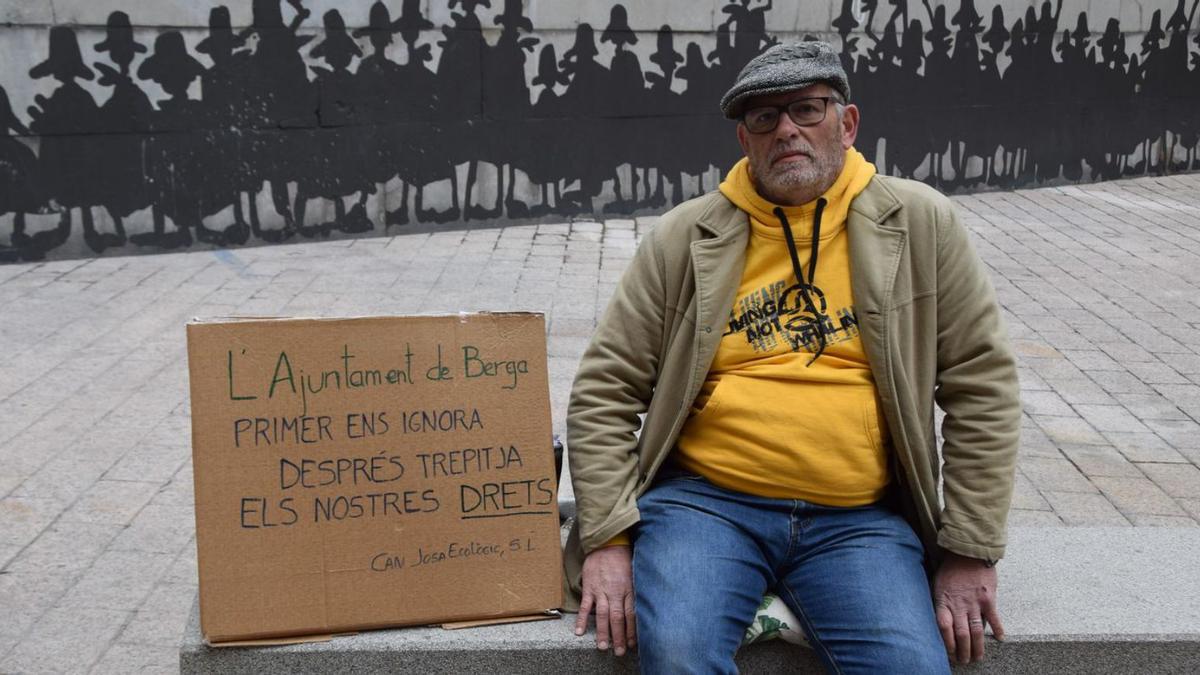 L'Ajuntament de Berga
PRIMER ENS IGNORA
DESPRÉS TREPITJA
ELS NOSTRES DRETS
CAN JOSA Ecològic, S.L
LIVING
NOT